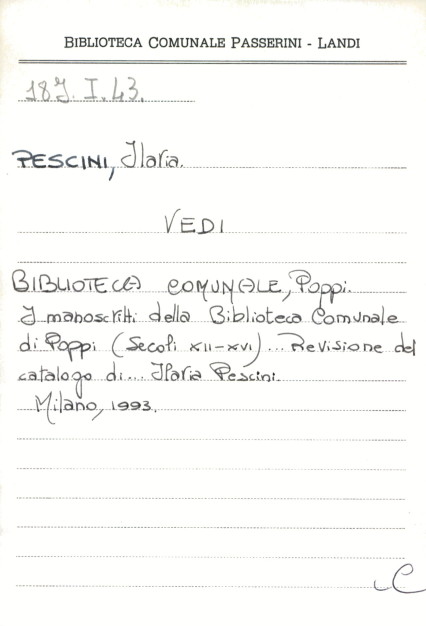 BIBLIOTECA COMUNALE PASSERINI - LANDI
18J. I. 43.
PESCINI, Ilaria.
VEDI
BIBLIOTECA COMUNALE, Poppi.
I manoscritti della Biblioteca Comunale
di Poppi (Secoli XII-XVI)... Revisione del
catalogo di... Ilaria Pescini.
Milano, 1993.